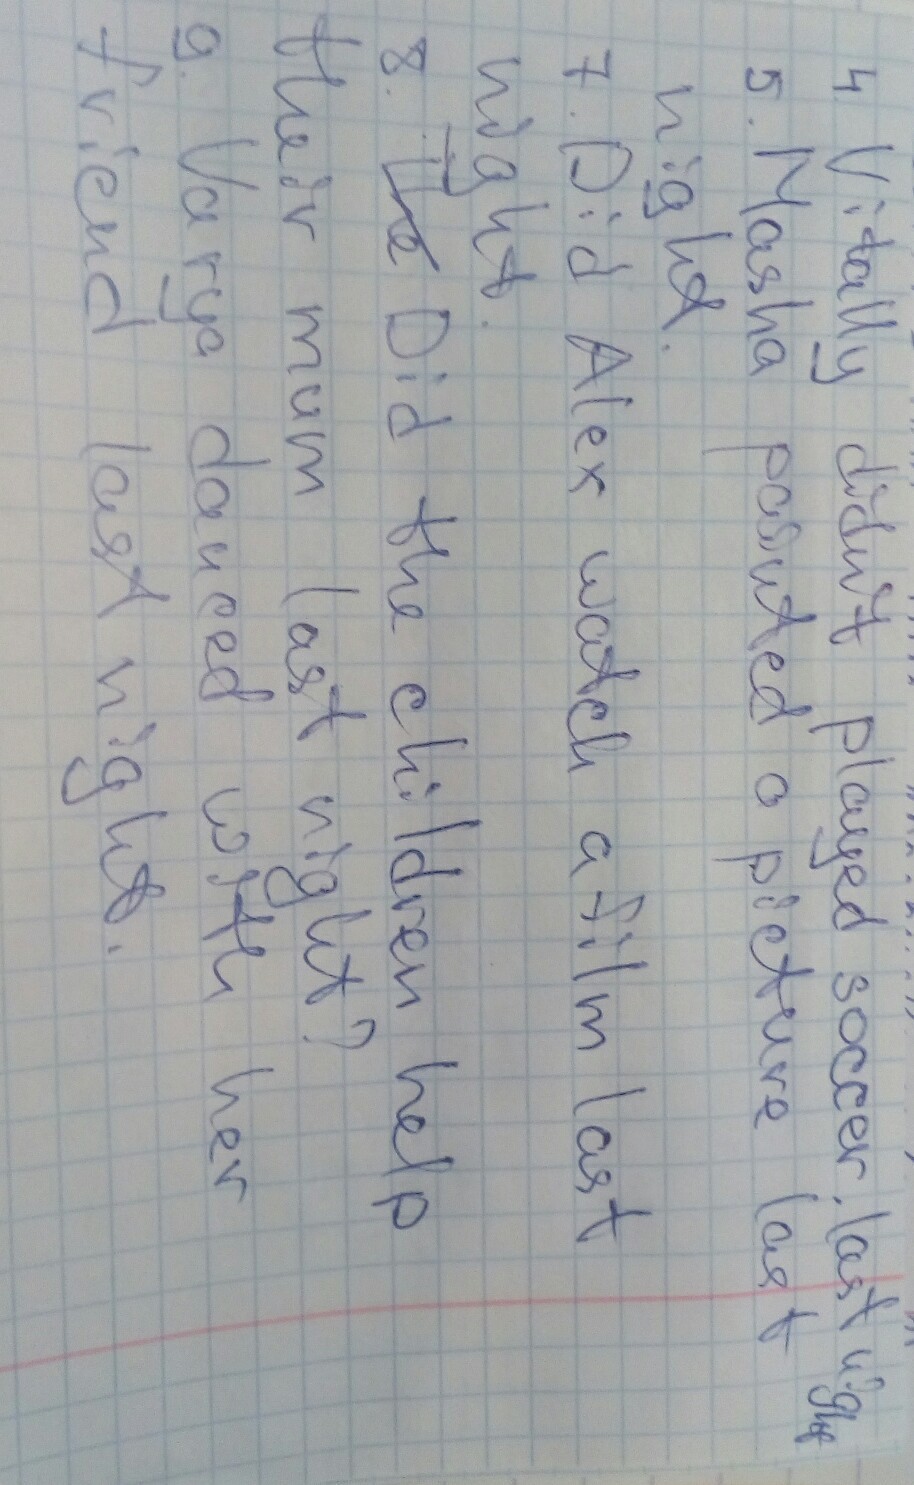 4. Vitally didn't played soccer, last night
5. Masha pasnted a picture last
night.
7. Did Alex watch a film last
night.
8. The Did the children help
their mum last night?
9. Varya danced with her
friend last night.